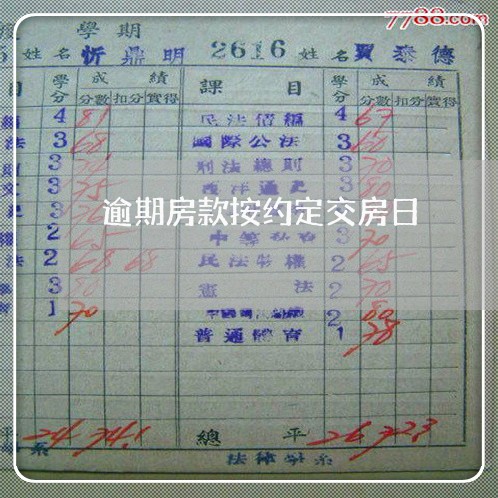 7788.com
學期
姓名 忻鼎明 2616 姓名 賈泰德
目 學分 成績 課目 學分 成績
分數 扣分 實得 分數 扣分 實得
4 81 民法債編 4 67
法 3 68 國際公法 3 60
3 刑法總則 3 70
3 75 西洋通史 80
逾期房款按约定交房日
2 65 3 70
法 2 68 68 民法物權 2 65
3 80 憲法 2 70
1 70 2 80
普通體育 1 78
平 24 74.1 總平 26 72.3
系 法律學系